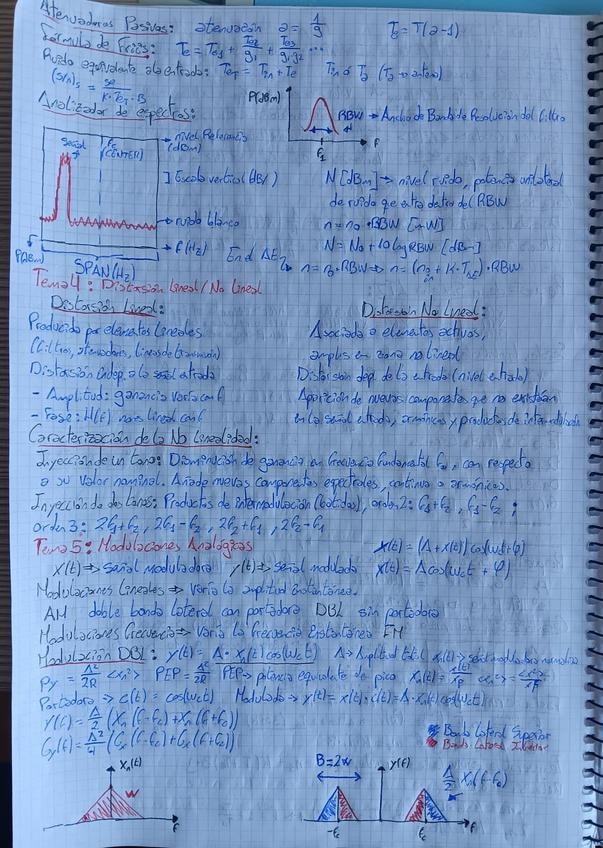 Atenuadores Pasivos: atenuación a = 1/g   Te = T(a-1)
Fórmula de Friis: Te = Te1 + Te2/g1 + Te3/g1g2 ...
Ruido equivalente a la entrada: TeT = Tin + Te   Tin o Ta (Ta → antena)
(s/n)s = se/K·TeT·B
P(dBm)
Analizador de espectros:
RBW → Ancho de Banda de Resolución del filtro
f
f1
Señal
fc (CENTER)
→ nivel Referencia (dBm)
] Escala vertical (dB/)
→ ruido blanco
→ f(Hz)
P(dBm)
SPAN(Hz)
N [dBm] → nivel ruido, potencia unilateral
de ruido que entra dentro del RBW
n = no · RBW [mW]
N = No + 10 log RBW [dBm]
Tema 4: Distorsión Lineal / No Lineal
Distorsión Lineal:
Producida por elementos lineales
(filtros, atenuadores, líneas de transmisión)
Distorsión indep. a la señal entrada
- Amplitud: ganancia varía con f
- Fase: H(f) no es lineal con f
Distorsión No Lineal:
Asociada a elementos activos,
amplis en zona no lineal
Distorsión dep. de la entrada (nivel entrada)
Aparición de nuevas componentes que no existían
en la señal entrada, armónicos y productos de intermodulación
Caracterización de la No Linealidad:
Inyección de un tono: Disminución de ganancia en frecuencia fundamental fo, con respecto
a su valor nominal. Añade nuevas componentes espectrales, continua o armónicos.
Inyección de dos tonos: Productos de intermodulación (batidos), orden 2: f1+f2, f1-f2;
Orden 3: 2f1+f2, 2f1-f2, 2f2+f1, 2f2-f1
Tema 5: Modulaciones Analógicas
x(t) ⇒ señal moduladora   y(t) ⇒ señal modulada
Modulaciones Lineales ⇒ varía la amplitud instantánea.
AM   doble banda lateral con portadora   DBL sin portadora
Modulaciones Frecuencia ⇒ Varía la frecuencia instantánea FM
Modulación DBL: y(t) = A · xn(t) cos(wct)   A → Amplitud total   xn(t) → señal moduladora normalizada
Py = A²/2R <xn²>   PEP = A²/2R   PEP → potencia equivalente de pico
Portadora → c(t) = cos(wct)   Modulada → y(t) = x(t) · c(t) = A · xn(t) cos(wct)
Y(f) = A/2 (Xn(f-fc) + Xn(f+fc))
Gy(f) = A²/4 (Gx(f-fc) + Gx(f+fc))
Banda Lateral Superior
Banda Lateral Inferior
Xn(f)
w
f
B=2w
Y(f)
A/2 Xn(f-fc)
-fc
fc
f